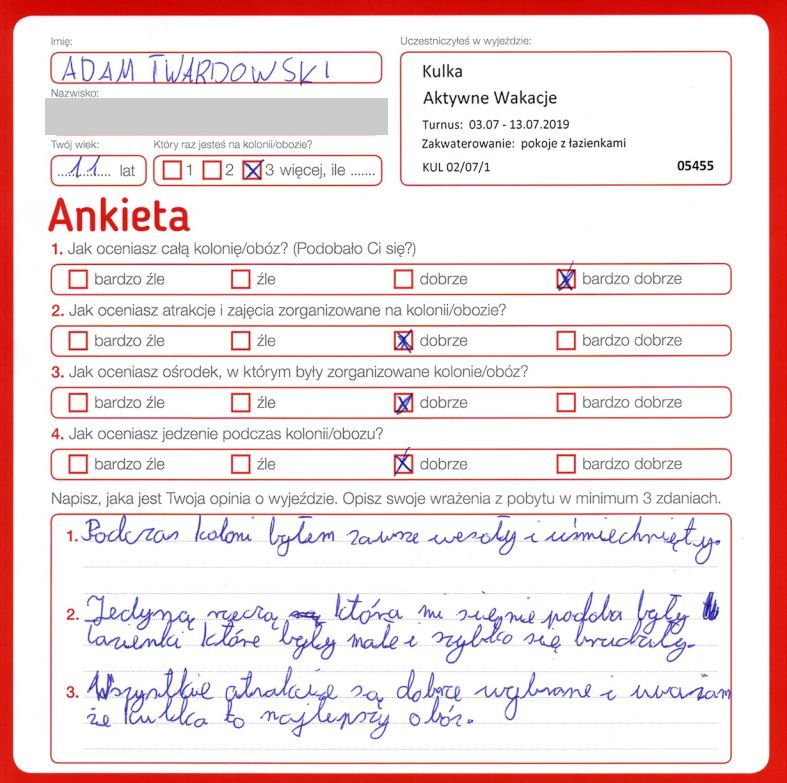 Imię:
ADAM TWARDOWSKI
Nazwisko:
Twój wiek:
Który raz jesteś na kolonii/obozie?
11 lat
1 2 3 więcej, ile .......
Uczestniczyłeś w wyjeździe:
Kulka
Aktywne Wakacje
Turnus: 03.07 - 13.07.2019
Zakwaterowanie: pokoje z łazienkami
KUL 02/07/1 05455
Ankieta
1. Jak oceniasz całą kolonię/obóz? (Podobało Ci się?)
bardzo źle źle dobrze bardzo dobrze
2. Jak oceniasz atrakcje i zajęcia zorganizowane na kolonii/obozie?
bardzo źle źle dobrze bardzo dobrze
3. Jak oceniasz ośrodek, w którym były zorganizowane kolonie/obóz?
bardzo źle źle dobrze bardzo dobrze
4. Jak oceniasz jedzenie podczas kolonii/obozu?
bardzo źle źle dobrze bardzo dobrze
Napisz, jaka jest Twoja opinia o wyjeździe. Opisz swoje wrażenia z pobytu w minimum 3 zdaniach.
1. Podczas koloni byłem zawsze wesoły i uśmiechnięty.
2. Jedyną rzeczą która mi się nie podoba były
łazienki które były małe i szybko się brudziły.
3. Wszystkie atrakcje są dobrze wybrane i uważam
że kulka to najlepszy obóz.